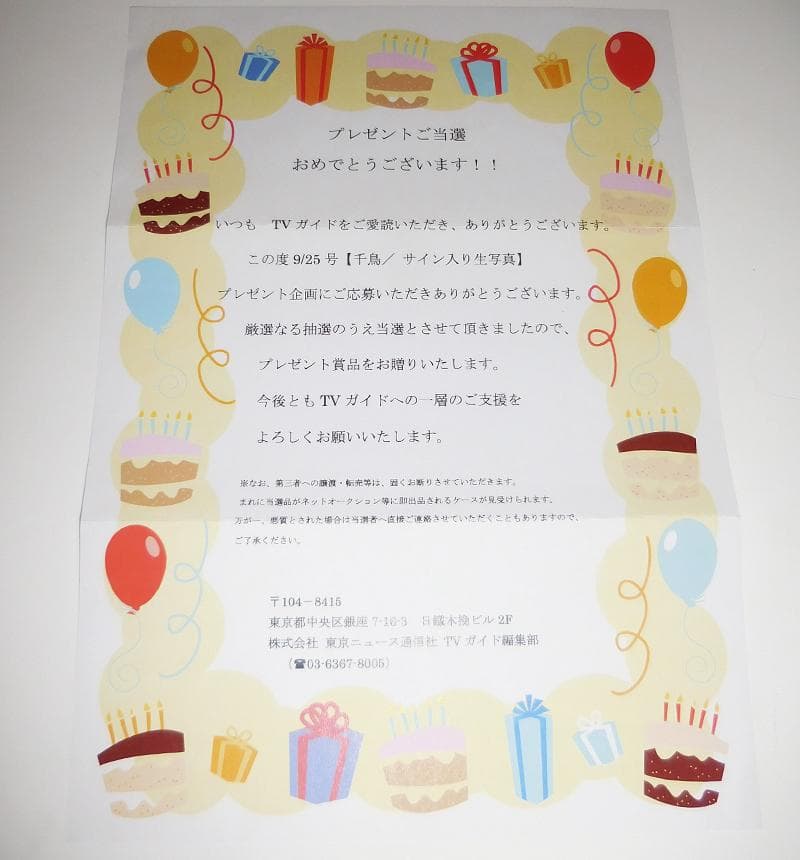 プレゼントご当選
おめでとうございます！！
いつも　TVガイドをご愛読いただき、ありがとうございます。
この度 9/25 号【千鳥／ サイン入り生写真】
プレゼント企画にご応募いただきありがとうございます。
厳選なる抽選のうえ当選とさせて頂きましたので、
プレゼント賞品をお贈りいたします。
今後とも TV ガイドへの一層のご支援を
よろしくお願いいたします。
※なお、第三者への譲渡・転売等は、固くお断りさせていただきます。
まれに当選品がネットオークション等に即出品されるケースが見受けられます。
万が一、悪質とされた場合は当選者へ直接ご連絡させていただくこともありますので、
ご了承ください。
〒104－8415
東京都中央区銀座 7-16-3　日鐵木挽ビル 2F
株式会社 東京ニュース通信社 TV ガイド編集部
（☎03-6367-8005）